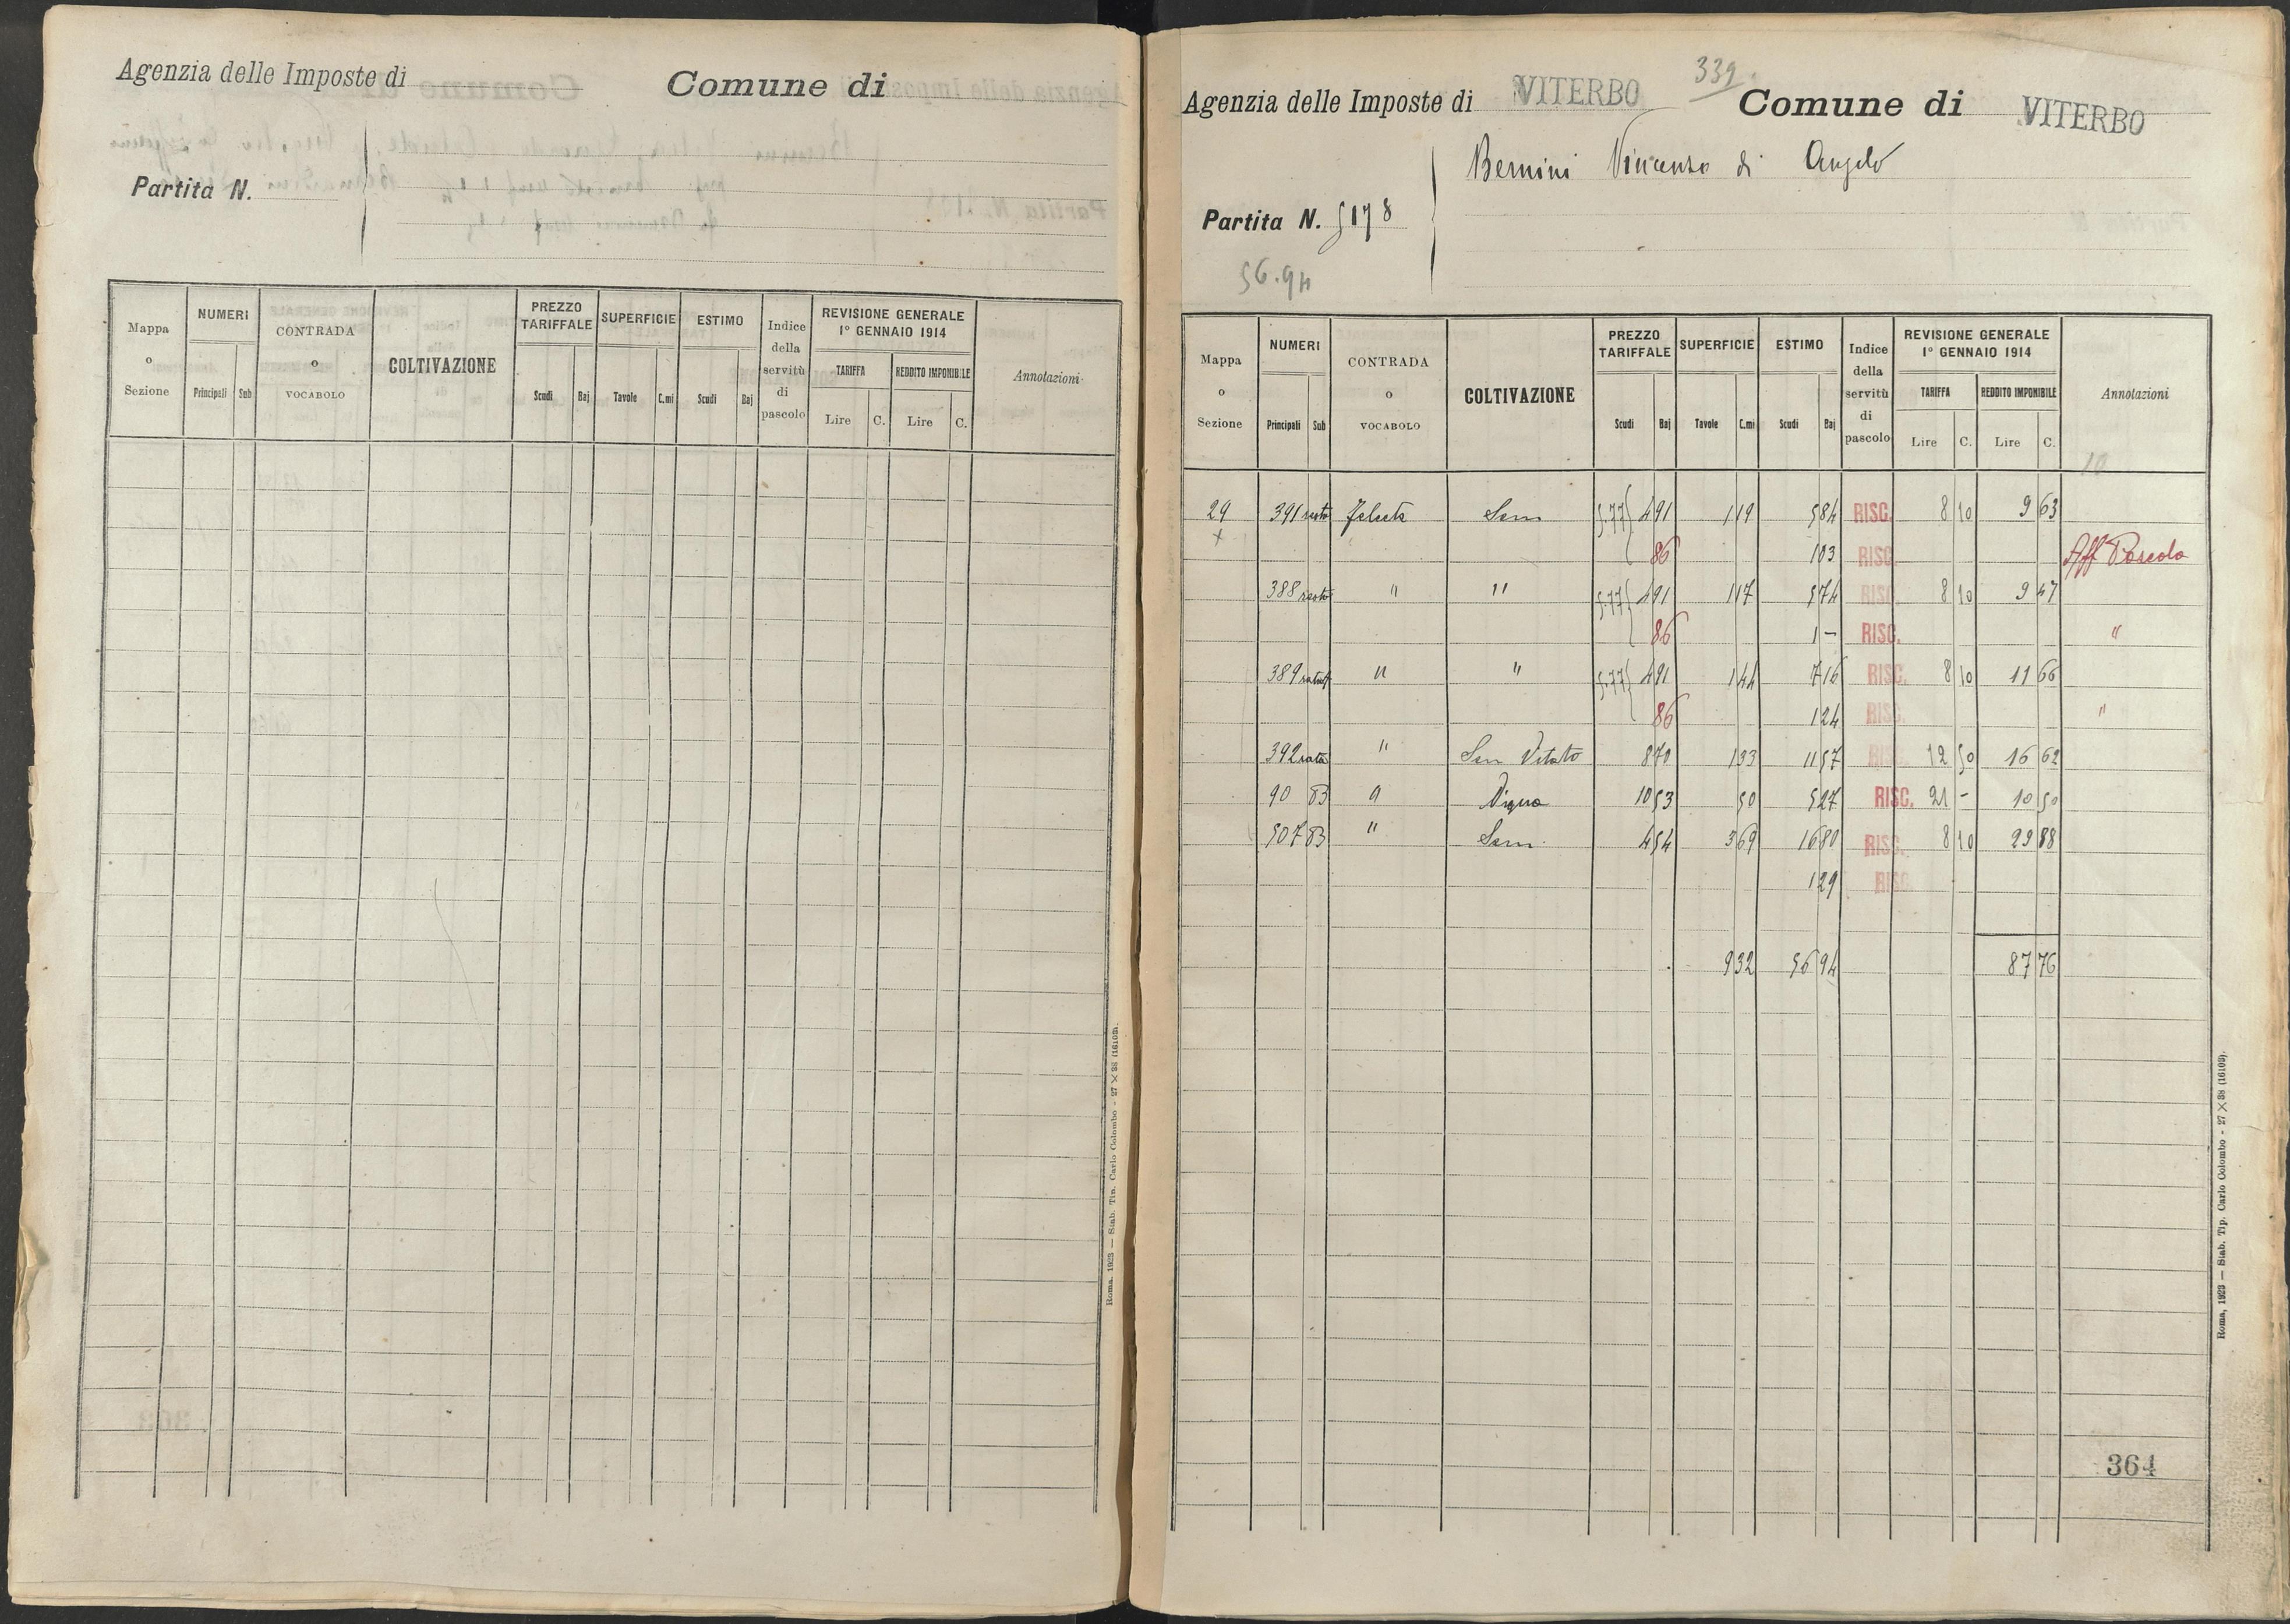 Agenzia delle Imposte di
Comune di
Partita N.
Mappa o Sezione
NUMERI
Principali Sub
CONTRADA o VOCABOLO
COLTIVAZIONE
PREZZO TARIFFALE
Scudi Baj
SUPERFICIE
Tavole C.mi
ESTIMO
Scudi Baj
Indice della servitù di pascolo
REVISIONE GENERALE
1° GENNAIO 1914
TARIFFA
Lire C.
REDDITO IMPONIBILE
Lire C.
Annotazioni
Roma, 1923 — Stab. Tip. Carlo Colombo - 27 × 38 (16103).
339.
Agenzia delle Imposte di VITERBO
Comune di VITERBO
Bernini Vincenzo di Angelo
Partita N. 5178
56.94
Mappa o Sezione
NUMERI
Principali Sub
CONTRADA o VOCABOLO
COLTIVAZIONE
PREZZO TARIFFALE
Scudi Baj
SUPERFICIE
Tavole C.mi
ESTIMO
Scudi Baj
Indice della servitù di pascolo
REVISIONE GENERALE
1° GENNAIO 1914
TARIFFA
Lire C.
REDDITO IMPONIBILE
Lire C.
Annotazioni
10
29 391 resto Sem 5.77 4 91 1 19 5 84 RISC. 8 10 9 63
x 86 1 03 RISC. Aff Pascolo
388 resto " " 5.77 4 91 1 17 5 74 RISC. 8 10 9 47
86 1 – RISC. "
389 " " 5.77 4 91 1 44 7 16 RISC. 8 10 11 66
86 1 24 RISC. "
392 rata " Sem Vitato 8 70 1 33 11 57 RISC. 12 50 16 62
90 " Vigna 10 53 50 5 27 RISC. 21 – 10 50
507 " Sem. 4 54 3 69 16 80 RISC. 8 10 29 88
1 29 RISC.
9 32 56 94 87 76
364
Roma, 1923 — Stab. Tip. Carlo Colombo - 27 × 38 (16103).